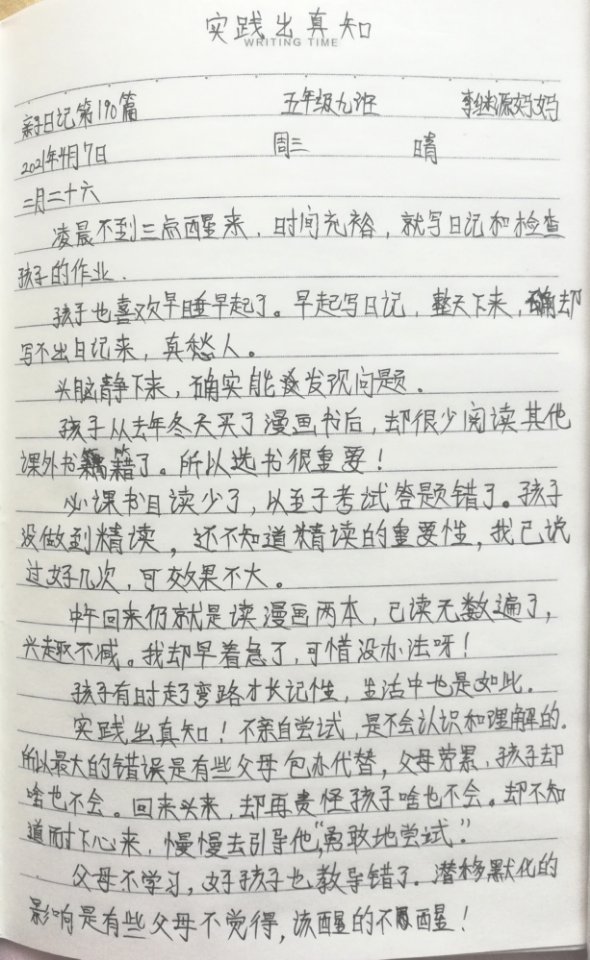 实践出真知
WRITING TIME
亲子日记第190篇 五年级九班 李继源妈妈
2021年4月7日 周三 晴
二月二十六
凌晨不到三点醒来，时间充裕，就写日记和检查
孩子的作业．
孩子也喜欢早睡早起了。早起写日记，整天下来，确却
写不出日记来，真愁人。
头脑静下来，确实能发现问题．
孩子从去年冬天买了漫画书后，却很少阅读其他
课外书籍了。所以选书很重要！
必课书目读少了，以至于考试答题错了。孩子
没做到精读，还不知道精读的重要性，我已说
过好几次，可效果不大。
中午回来仍就是读漫画两本，已读无数遍了，
兴趣不减。我却早着急了，可惜没办法呀！
孩子有时走了弯路才长记性，生活中也是如此．
实践出真知！不亲自尝试，是不会认识和理解的．
所以最大的错误是有些父母包办代替，父母劳累、孩子却
啥也不会。回来头来，却再责怪孩子啥也不会。却不知
道耐下心来，慢慢去引导他“勇敢地尝试”．
父母不学习，好孩子也教导错了．潜移默化的
影响是有些父母不觉得，该醒的不醒！